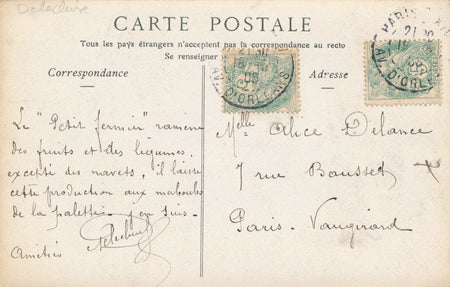 Delecluse
CARTE POSTALE
Tous les pays étrangers n'acceptent pas la correspondance au recto
Se renseigner
Correspondance
Adresse
Le "Petit fermier" ramène
des fruits et des legumes,
excepté des navets, il laisse
cette production aux maboules
de la palette. J'en suis.
Amitiés
Delecluse
Melle Alice Delance
7 rue Bausset
Paris. Vaugirard
PARIS
AV. D'ORLEANS
AV. D'ORLEANS